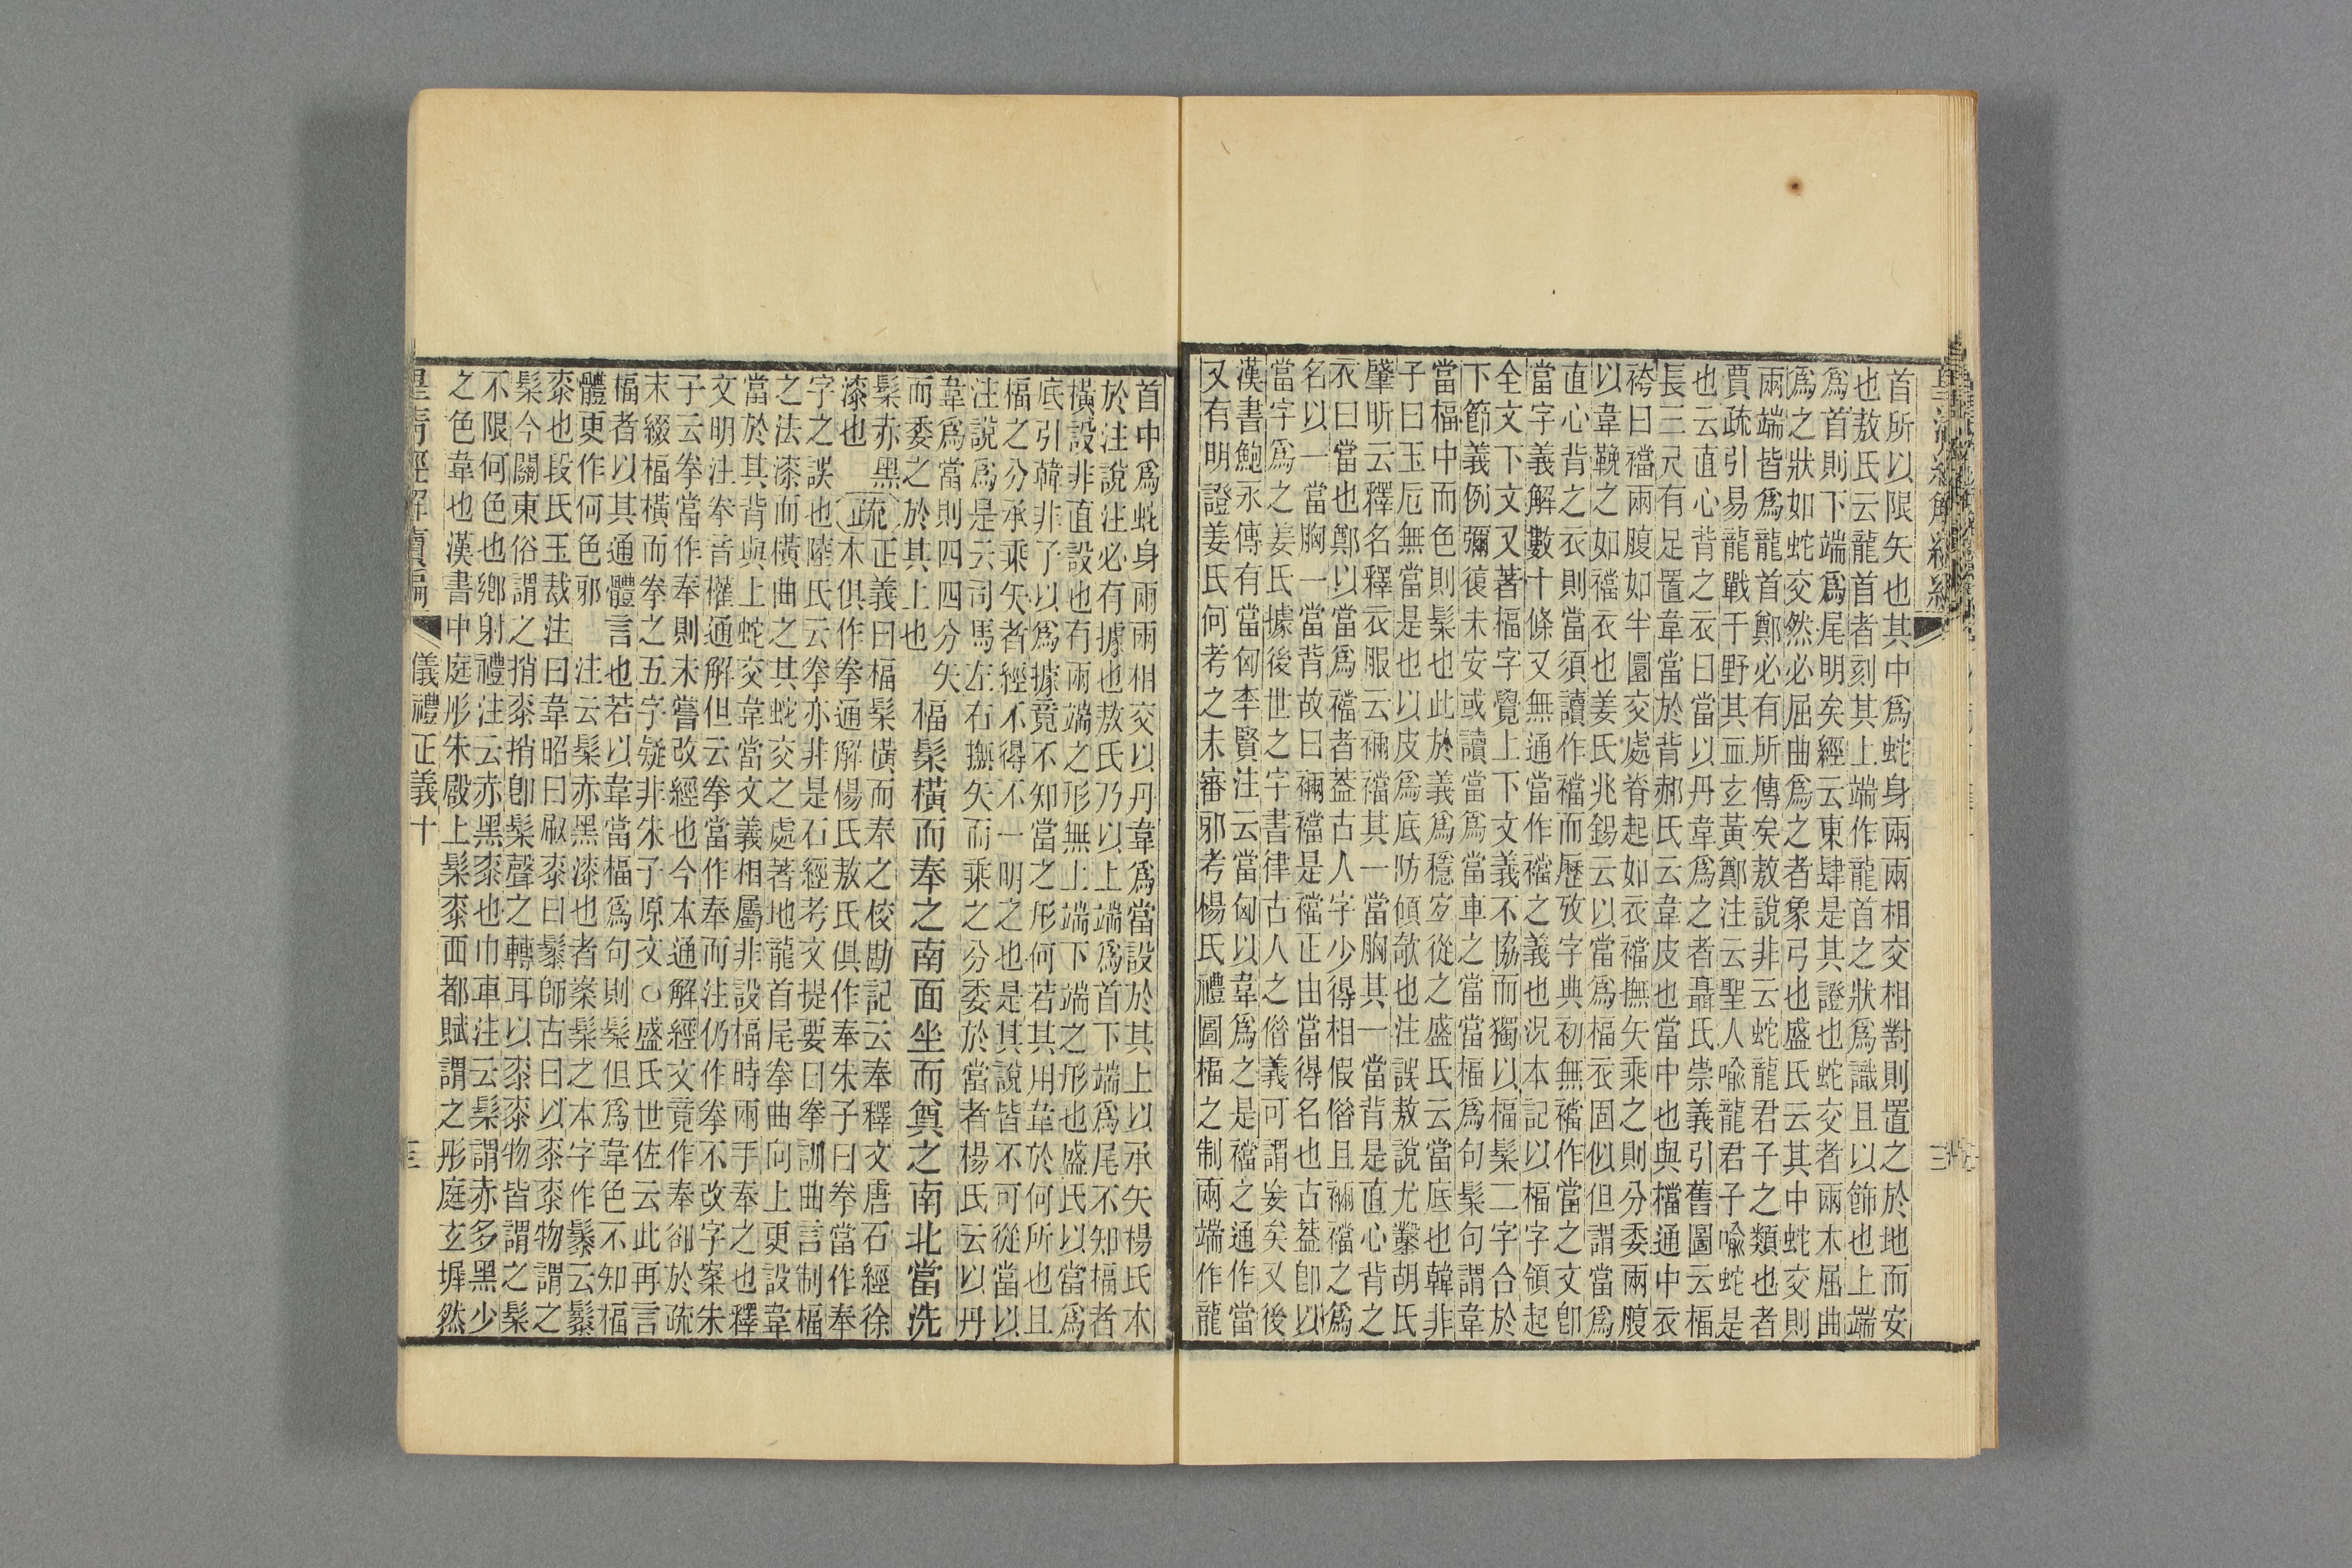 首所以限矢也其中爲蛇身兩兩相交相對則置之於地而安
也敖氏云龍首者刻其上端作龍首之狀爲識且以飾也上端
爲首則下端爲尾明矣經云東肆是其證也蛇交者兩木屈曲
爲之狀如蛇交然必屈曲爲之者象弓也盛氏云其中蛇交則
兩端皆爲龍首鄭必有所傳矣敖說非云蛇龍君子之類也者
賈疏引易龍戰于野其血玄黃鄭注云聖人喻龍君子喻蛇是
也云直心背之衣曰當以丹韋爲之者聶氏崇義引舊圖云楅
長三尺有足置韋當於背郝氏云韋皮也當中也與襠通中衣
袴曰襠兩腹如半圜交處脊起如衣襠撫矢乘之則分委兩腹
以韋鞔之如襠衣也姜氏兆錫云以當爲楅衣固似但謂當爲
直心背之衣則當須讀作襠而歷攷字典初無襠作當之文卽
當字義解數十條又無通當作襠之義也況本記以楅字領起
全文下文又著楅字覺上下文義不協而獨以楅髤二字合於
下節義例彌復未安或讀當爲當車之當當楅爲句髤句謂韋
當楅中而色則髤也此於義爲穩穷從之盛氏云當底也韓非
子曰玉卮無當是也以皮爲底防傾欹也注誤敖說尤鑿胡氏
肇昕云釋名釋衣服云裲襠其一當胸其一當背是直心背之
衣曰當也鄭以當爲襠者葢古人字少得相假偺且裲襠之爲
名以一當胸一當背故曰裲襠是襠正由當得名也古葢卽以
當字爲之姜氏據後世之字書律古人之偺義可謂妄矣又後
漢書鮑永傳有當匈李賢注云當匈以韋爲之是襠之通作當
又有明證姜氏何考之未審邪考楊氏禮圖楅之制兩端作龍
首中爲蛇身兩兩相交以丹韋爲當設於其上以承矢楊氏本
於注說注必有據也敖氏乃以上端爲首下端爲尾不知楅者
橫設非直設也有兩端之形無上端下端之形也盛氏以當爲
底引韓非了以爲據竟不知當之形何若其用韋於何所也且
楅之分承乘矢者經不得不一明之也是其說皆不可從當以
注說爲是云司馬左右撫矢而乘之分委於當者楊氏云以丹
韋爲當則四四分矢
而委之於其上也楅髤橫而奉之南面坐而奠之南北當洗
髤赤黑疏正義曰楅髤橫而奉之校勘記云奉釋文唐石經徐
漆也正本俱作拳通解楊氏敖氏俱作奉朱子曰拳當作奉
字之誤也陸氏云拳亦非是石經考文提要曰拳訓曲言制楅
之法漆而橫曲之其蛇交之處著地龍首尾拳曲向上更設韋
當於其背與上蛇交韋當文義相屬非設楅時兩手奉之也釋
文明注拳音權通解但云拳當作奉而注仍作拳不改字案朱
子云拳當作奉則未嘗改經也今本通解經文竟作奉卻於疏
末綴楅橫而拳之五字疑非朱子原文○盛氏世佐云此再言
楅者以其通體言也若以韋當楅爲句則髤但爲韋色不知楅
體更作何色邪　注云髤赤黑漆也者案髤之本字作䰍云䰍
桼也段氏玉裁注曰韋昭曰㕞桼曰䰍師古曰以桼桼物謂之
髤今關東俗謂之捎桼捎卽髤聲之轉耳以桼桼物皆謂之髤
不限何色也鄉射禮注云赤黑桼也巾車注云髤謂赤多黑少
之色韋也漢書中庭彤朱殿上髤桼西都賦謂之彤庭玄墀然
皇清經解續編　儀禮正義十